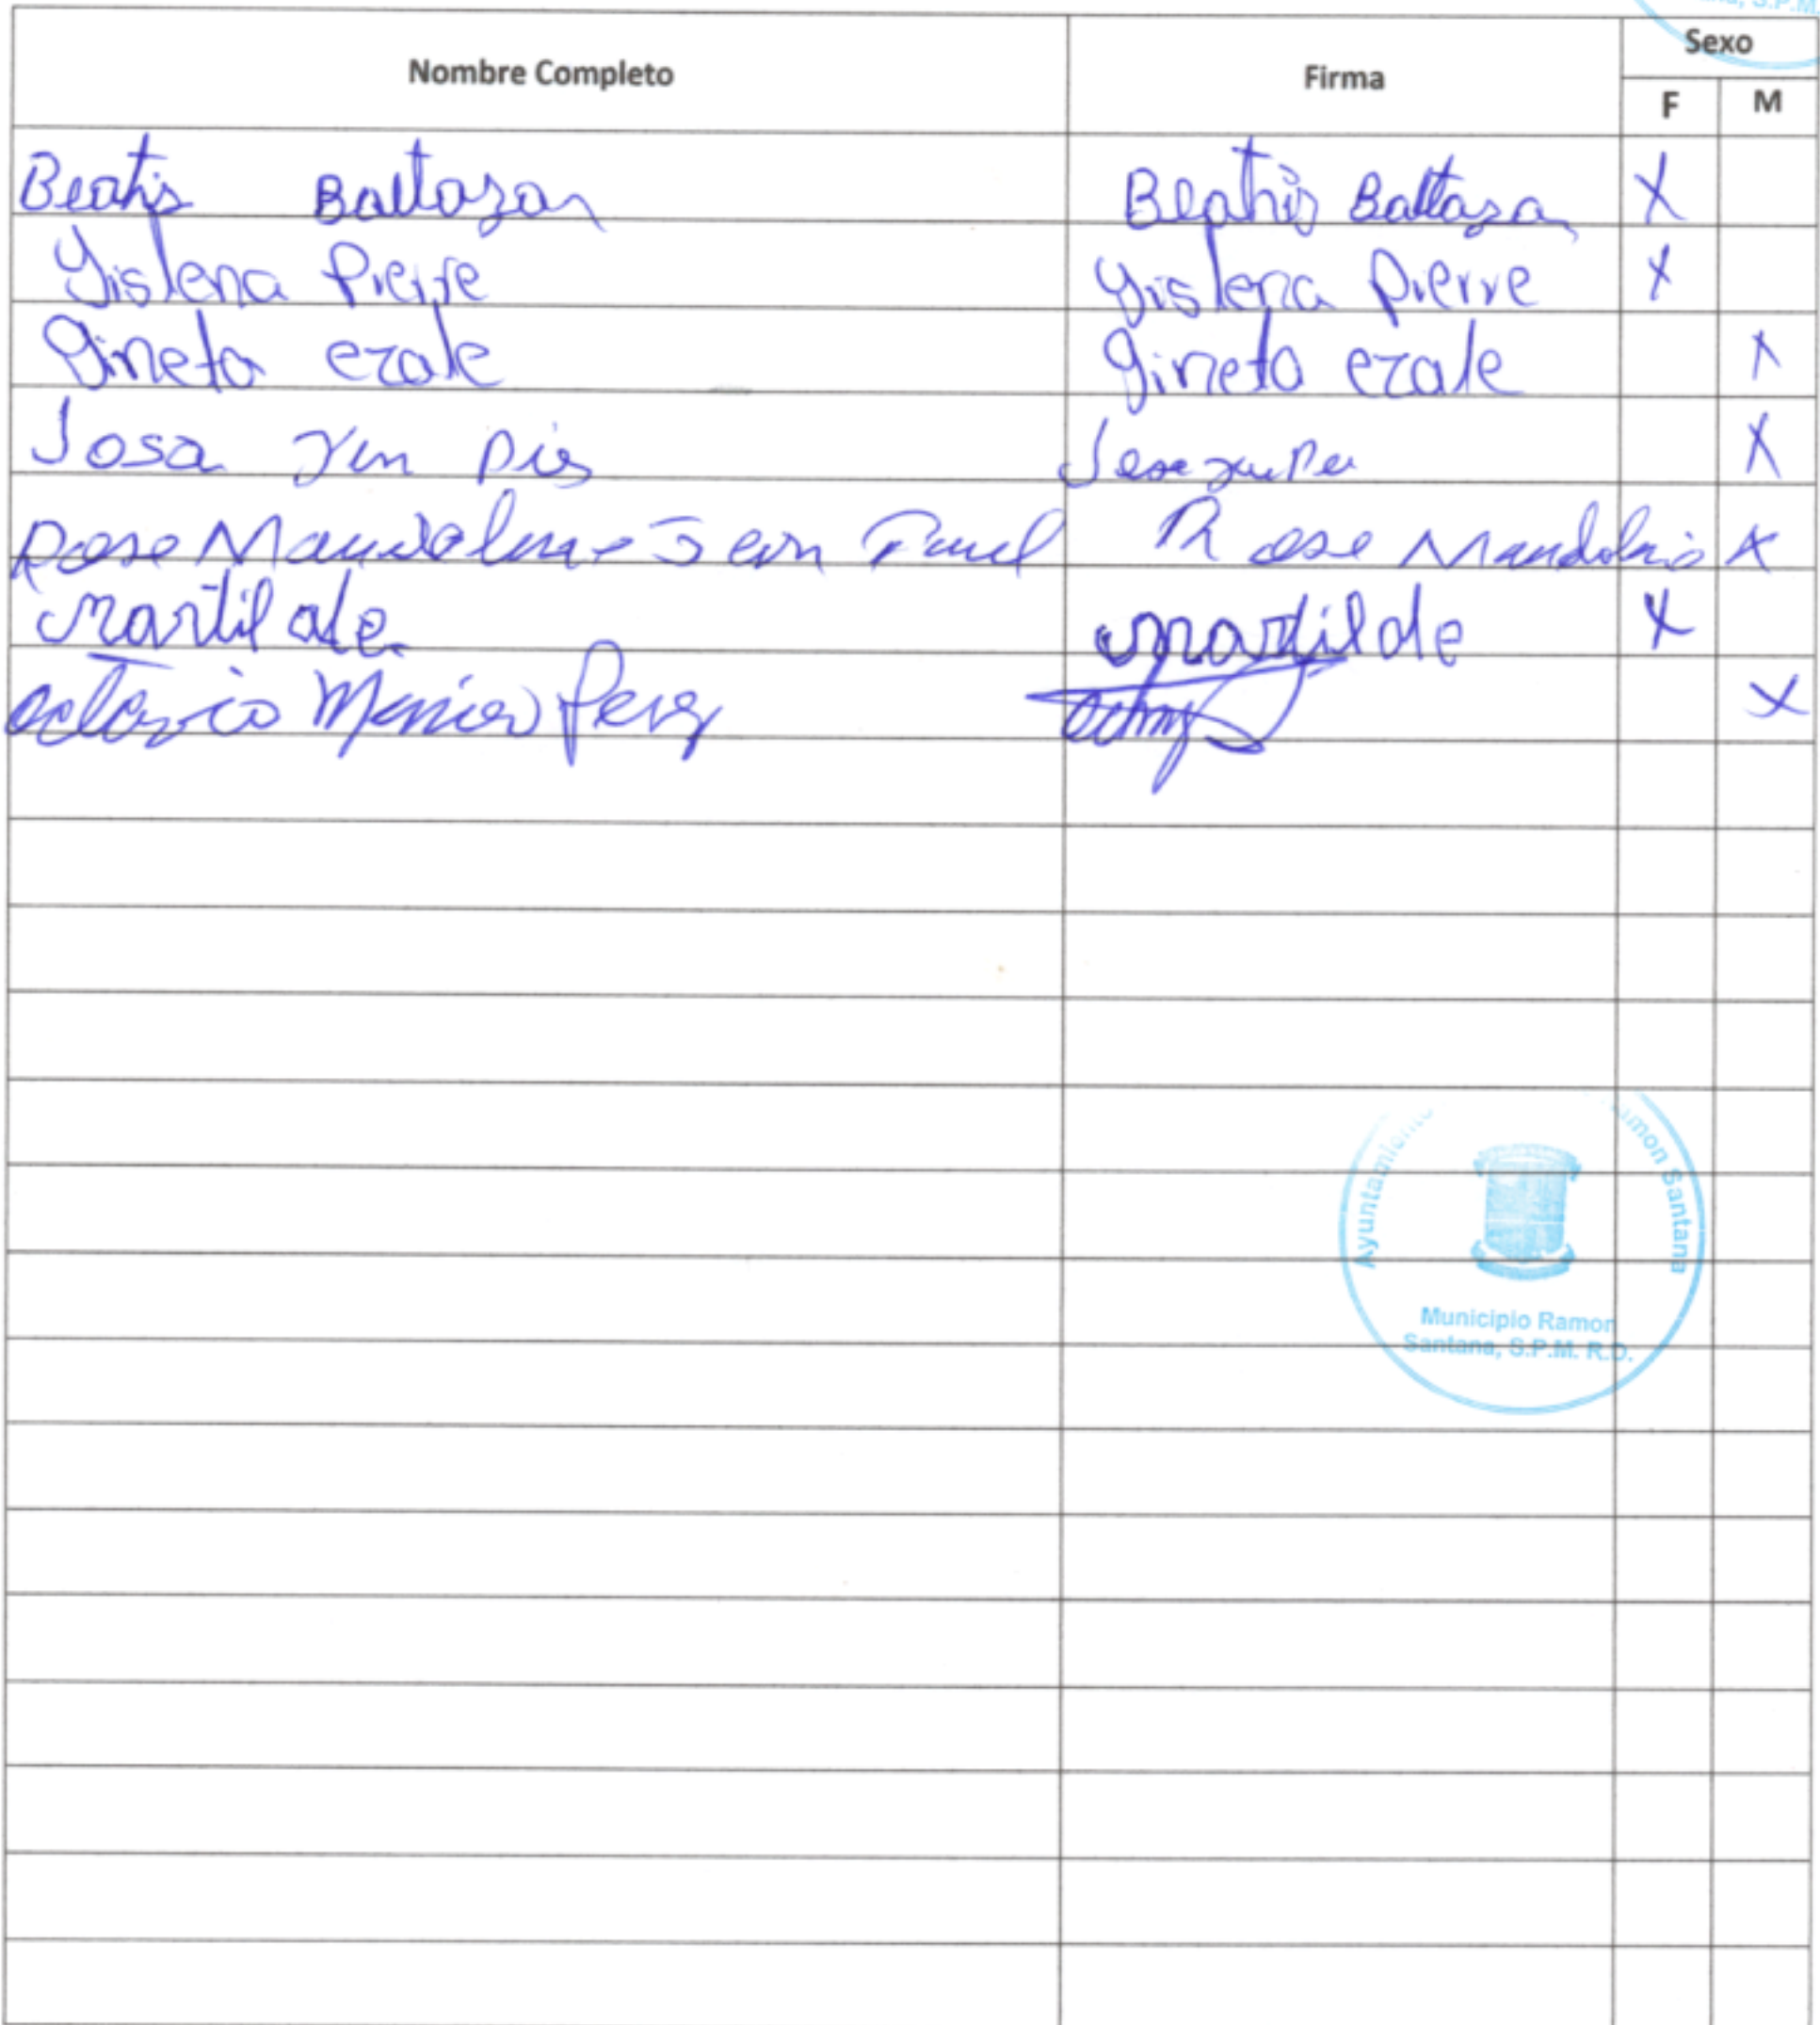 na, S.P.M.
Nombre Completo Firma Sexo
F M
Beatis Baltazar Beatris Baltaza X
Yislena Pierre Yislena Pierre X
Gineta ezale Gineta ezale X
Josa Yin Pis X
Rose Jean Paul Rose X
martilde martilde X
octavio Perez X
Ayuntamiento amon Santana
Municipio Ramon
Santana, S.P.M. R.D.